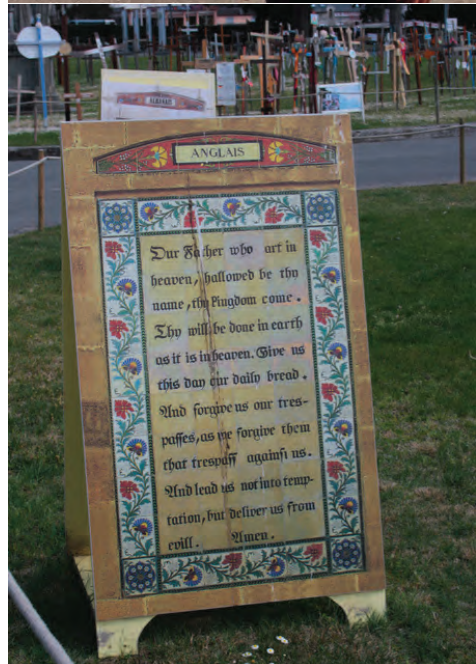 ANGLAIS
Our Father who art in
heaven, hallowed be thy
name, thy Kingdom come.
Thy will be done in earth
as it is in heaven. Give us
this day our daily bread.
And forgive us our tres-
paſſes, as we forgive them
that treſpaſſ againſt us.
And lead us not into temp-
tation, but deliver us from
evill. Amen.